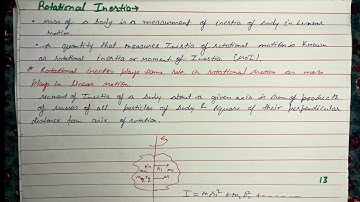 Rotational Inertia →
• mass of a body is a measurement of inertia of body in linear
motion.
• A quantity that measures Inertia of rotational motion is known
as rotational inertia or moment of Inertia. (MOI).
* Rotational inertia plays same role in rotational motion as mass
plays in linear motion.
Moment of Inertia of a body about a given axis is sum of products
of masses of all particles of body & square of their perpendicular
distance from axis of rotation.
13
I = m₁r₁² + m₂r₂² +